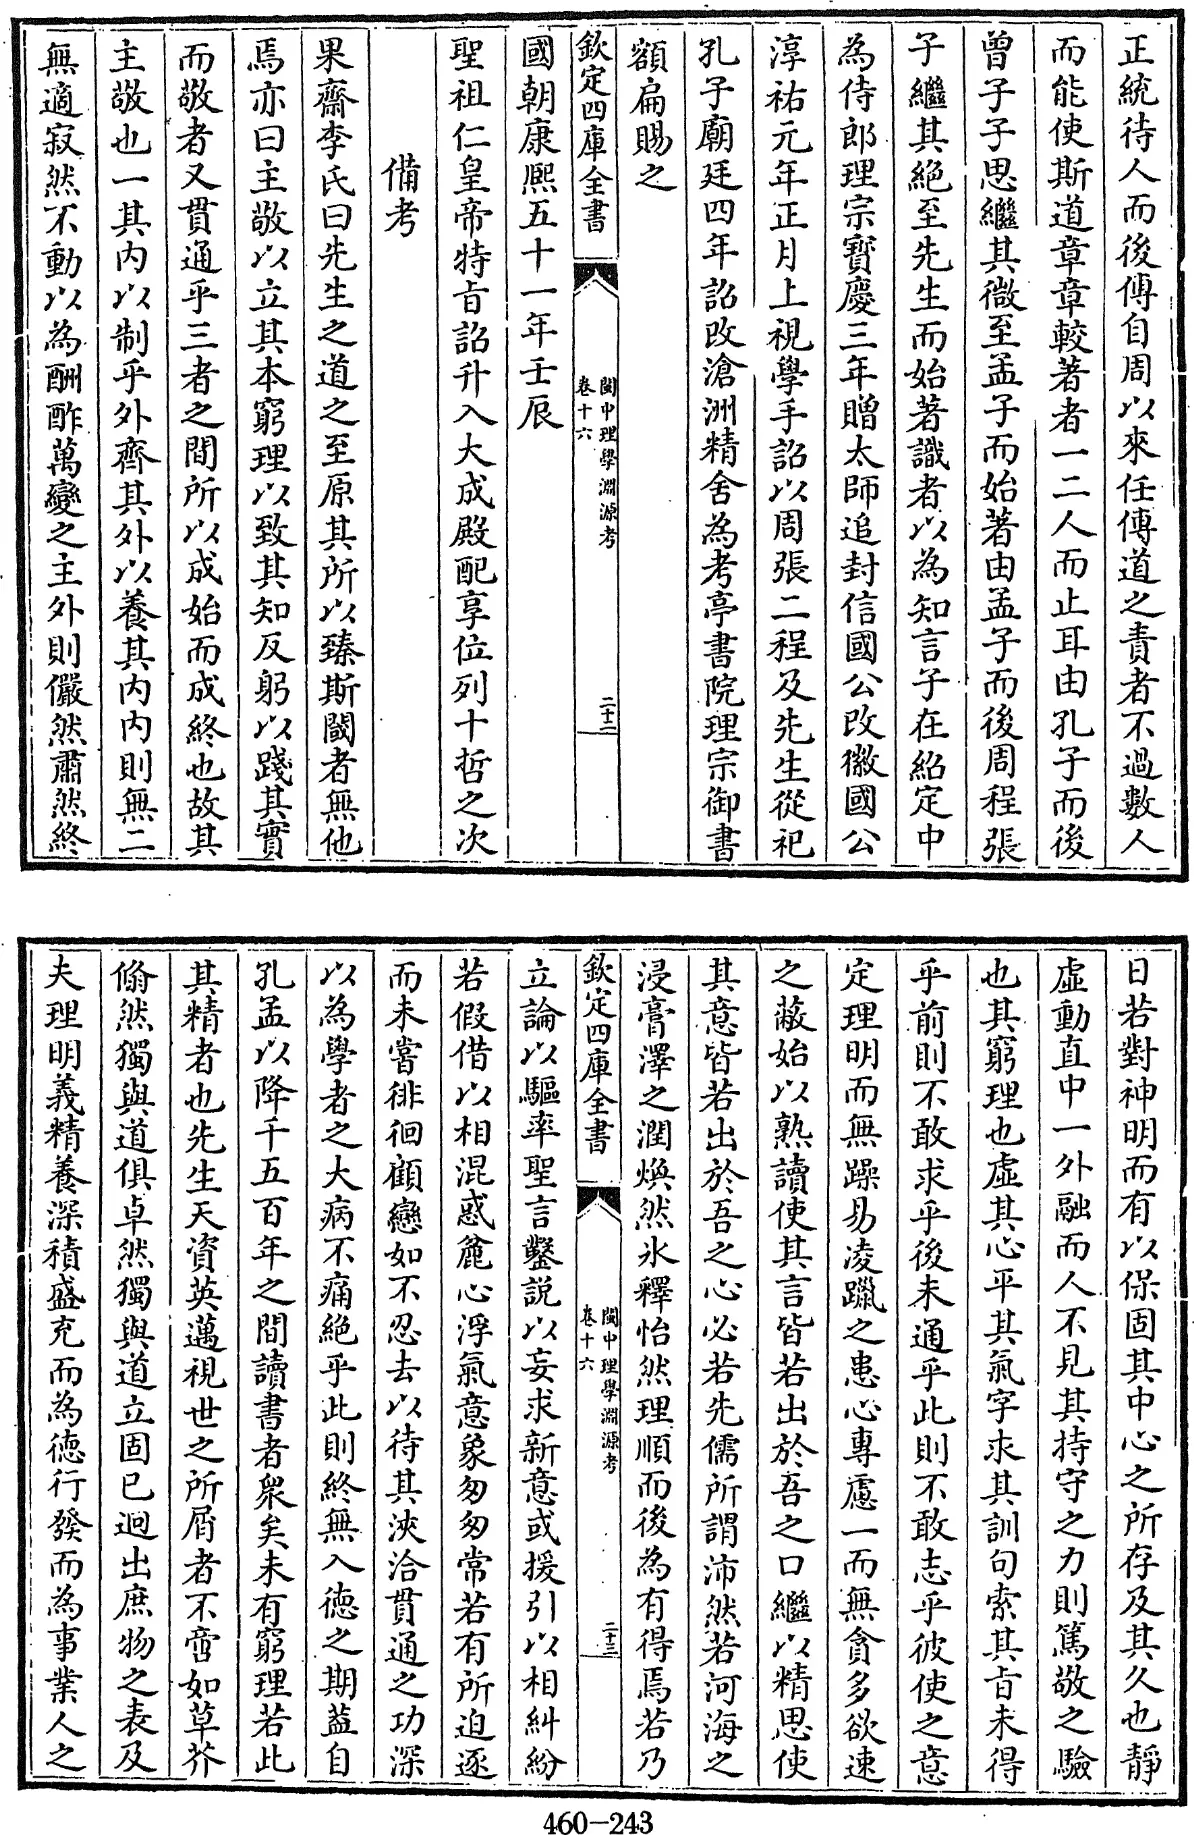 正統待人而後傳自周以來任傳道之責者不過數人
而能使斯道章章較著者一二人而止耳由孔子而後
曾子子思繼其微至孟子而始著由孟子而後周程張
子繼其絕至先生而始著識者以為知言子在紹定中
為侍郎理宗寳慶三年贈太師追封信國公改徽國公
淳祐元年正月上視學手詔以周張二程及先生從祀
孔子廟廷四年詔改滄洲精舍為考亭書院理宗御書
額扁賜之
欽定四庫全書
閩中理學淵源考
卷十六
二十二
國朝康熈五十一年壬辰
聖祖仁皇帝特旨詔升入大成殿配享位列十哲之次
備考
果齋李氏曰先生之道之至原其所以臻斯閾者無他
焉亦曰主敬以立其本窮理以致其知反躬以踐其實
而敬者又貫通乎三者之間所以成始而成終也故其
主敬也一其内以制乎外齊其外以養其内内則無二
無適寂然不動以為酬酢萬變之主外則儼然肅然終
日若對神明而有以保固其中心之所存及其久也靜
虛動直中一外融而人不見其持守之力則篤敬之驗
也其窮理也虛其心平其氣字求其訓句索其旨未得
乎前則不敢求乎後未通乎此則不敢志乎彼使之意
定理明而無躁易凌躐之患心專慮一而無貪多欲速
之蔽始以熟讀使其言皆若出於吾之口繼以精思使
其意皆若出於吾之心必若先儒所謂沛然若河海之
浸膏澤之潤煥然氷釋怡然理順而後為有得焉若乃
欽定四庫全書
閩中理學淵源考
卷十六
二十三
立論以驅率聖言鑿説以妄求新意或援引以相糾紛
若假借以相混惑麄心浮氣意象匆匆常若有所迫逐
而未嘗徘徊顧戀如不忍去以待其浹洽貫通之功深
以為學者之大病不痛絶乎此則終無入德之期葢自
孔孟以降千五百年之間讀書者衆矣未有窮理若此
其精者也先生天資英邁視世之所屑者不啻如草芥
翛然獨與道俱卓然獨與道立固已迥出庶物之表及
夫理明義精養深積盛充而為德行發而為事業人之
460-243